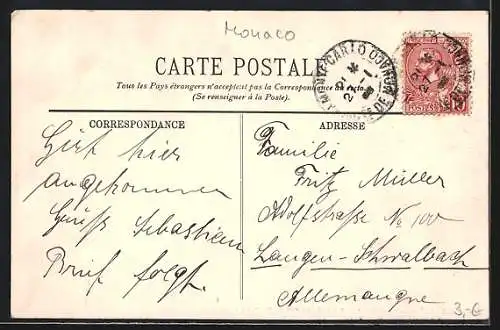 Monaco
CARTE POSTALE
Tous les Pays étrangers n'acceptent pas la Correspondance
(Se renseigner à la Poste).
MONTE-CARLO
21
27-1
CORRESPONDANCE
ADRESSE
hier
angekommen
Gruß Sebastian
Brief folgt.
Familie
Fritz Müller
Adolfstraße No 100
Langen-Schwalbach
Allemangne
POSTES
3,-€